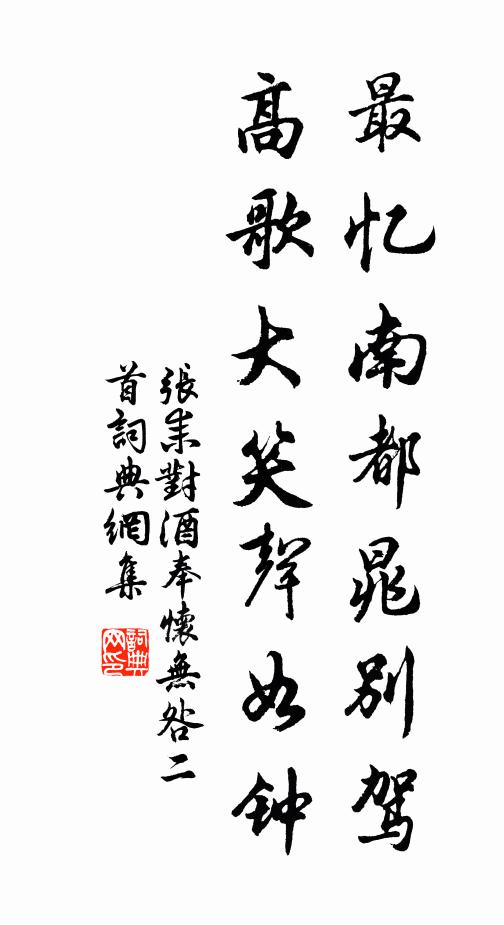 最忆南都晁别驾
高歌大笑聲如钟
張耒對酒奉懷無咎二
首詞典網集
詞典
网印